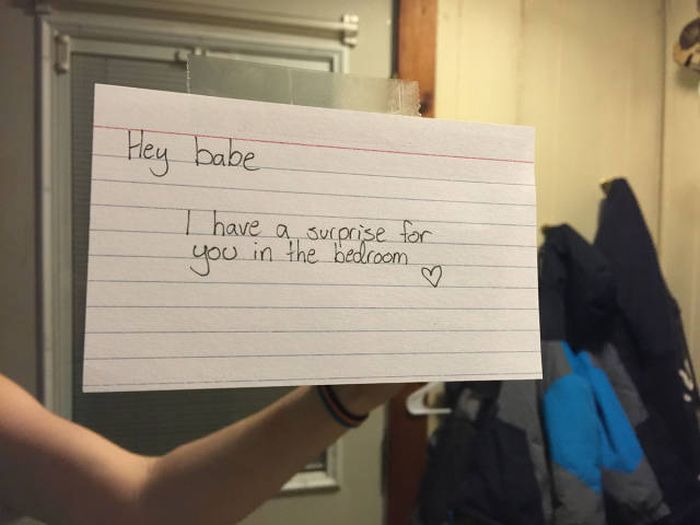 Hey babe
I have a surprise for
you in the bedroom
♡